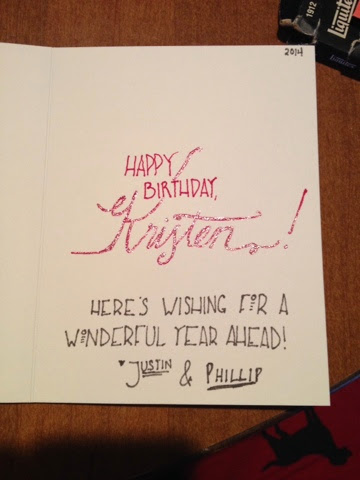 1912
liquite
2014
HAPPY
BIRTHDAY,
Kristen!
HERE'S WISHING FOR A
WONDERFUL YEAR AHEAD!
♥ JUSTIN & PHILLIP